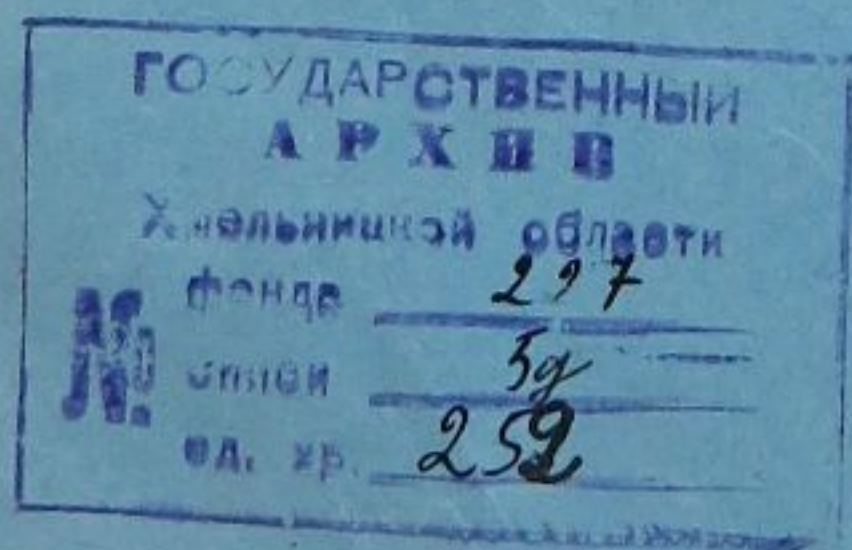 ГОСУДАРСТВЕННЫЙ
АРХИВ
Хмельницкой области
№ фонда 297
описи 5д
ед. хр. 252